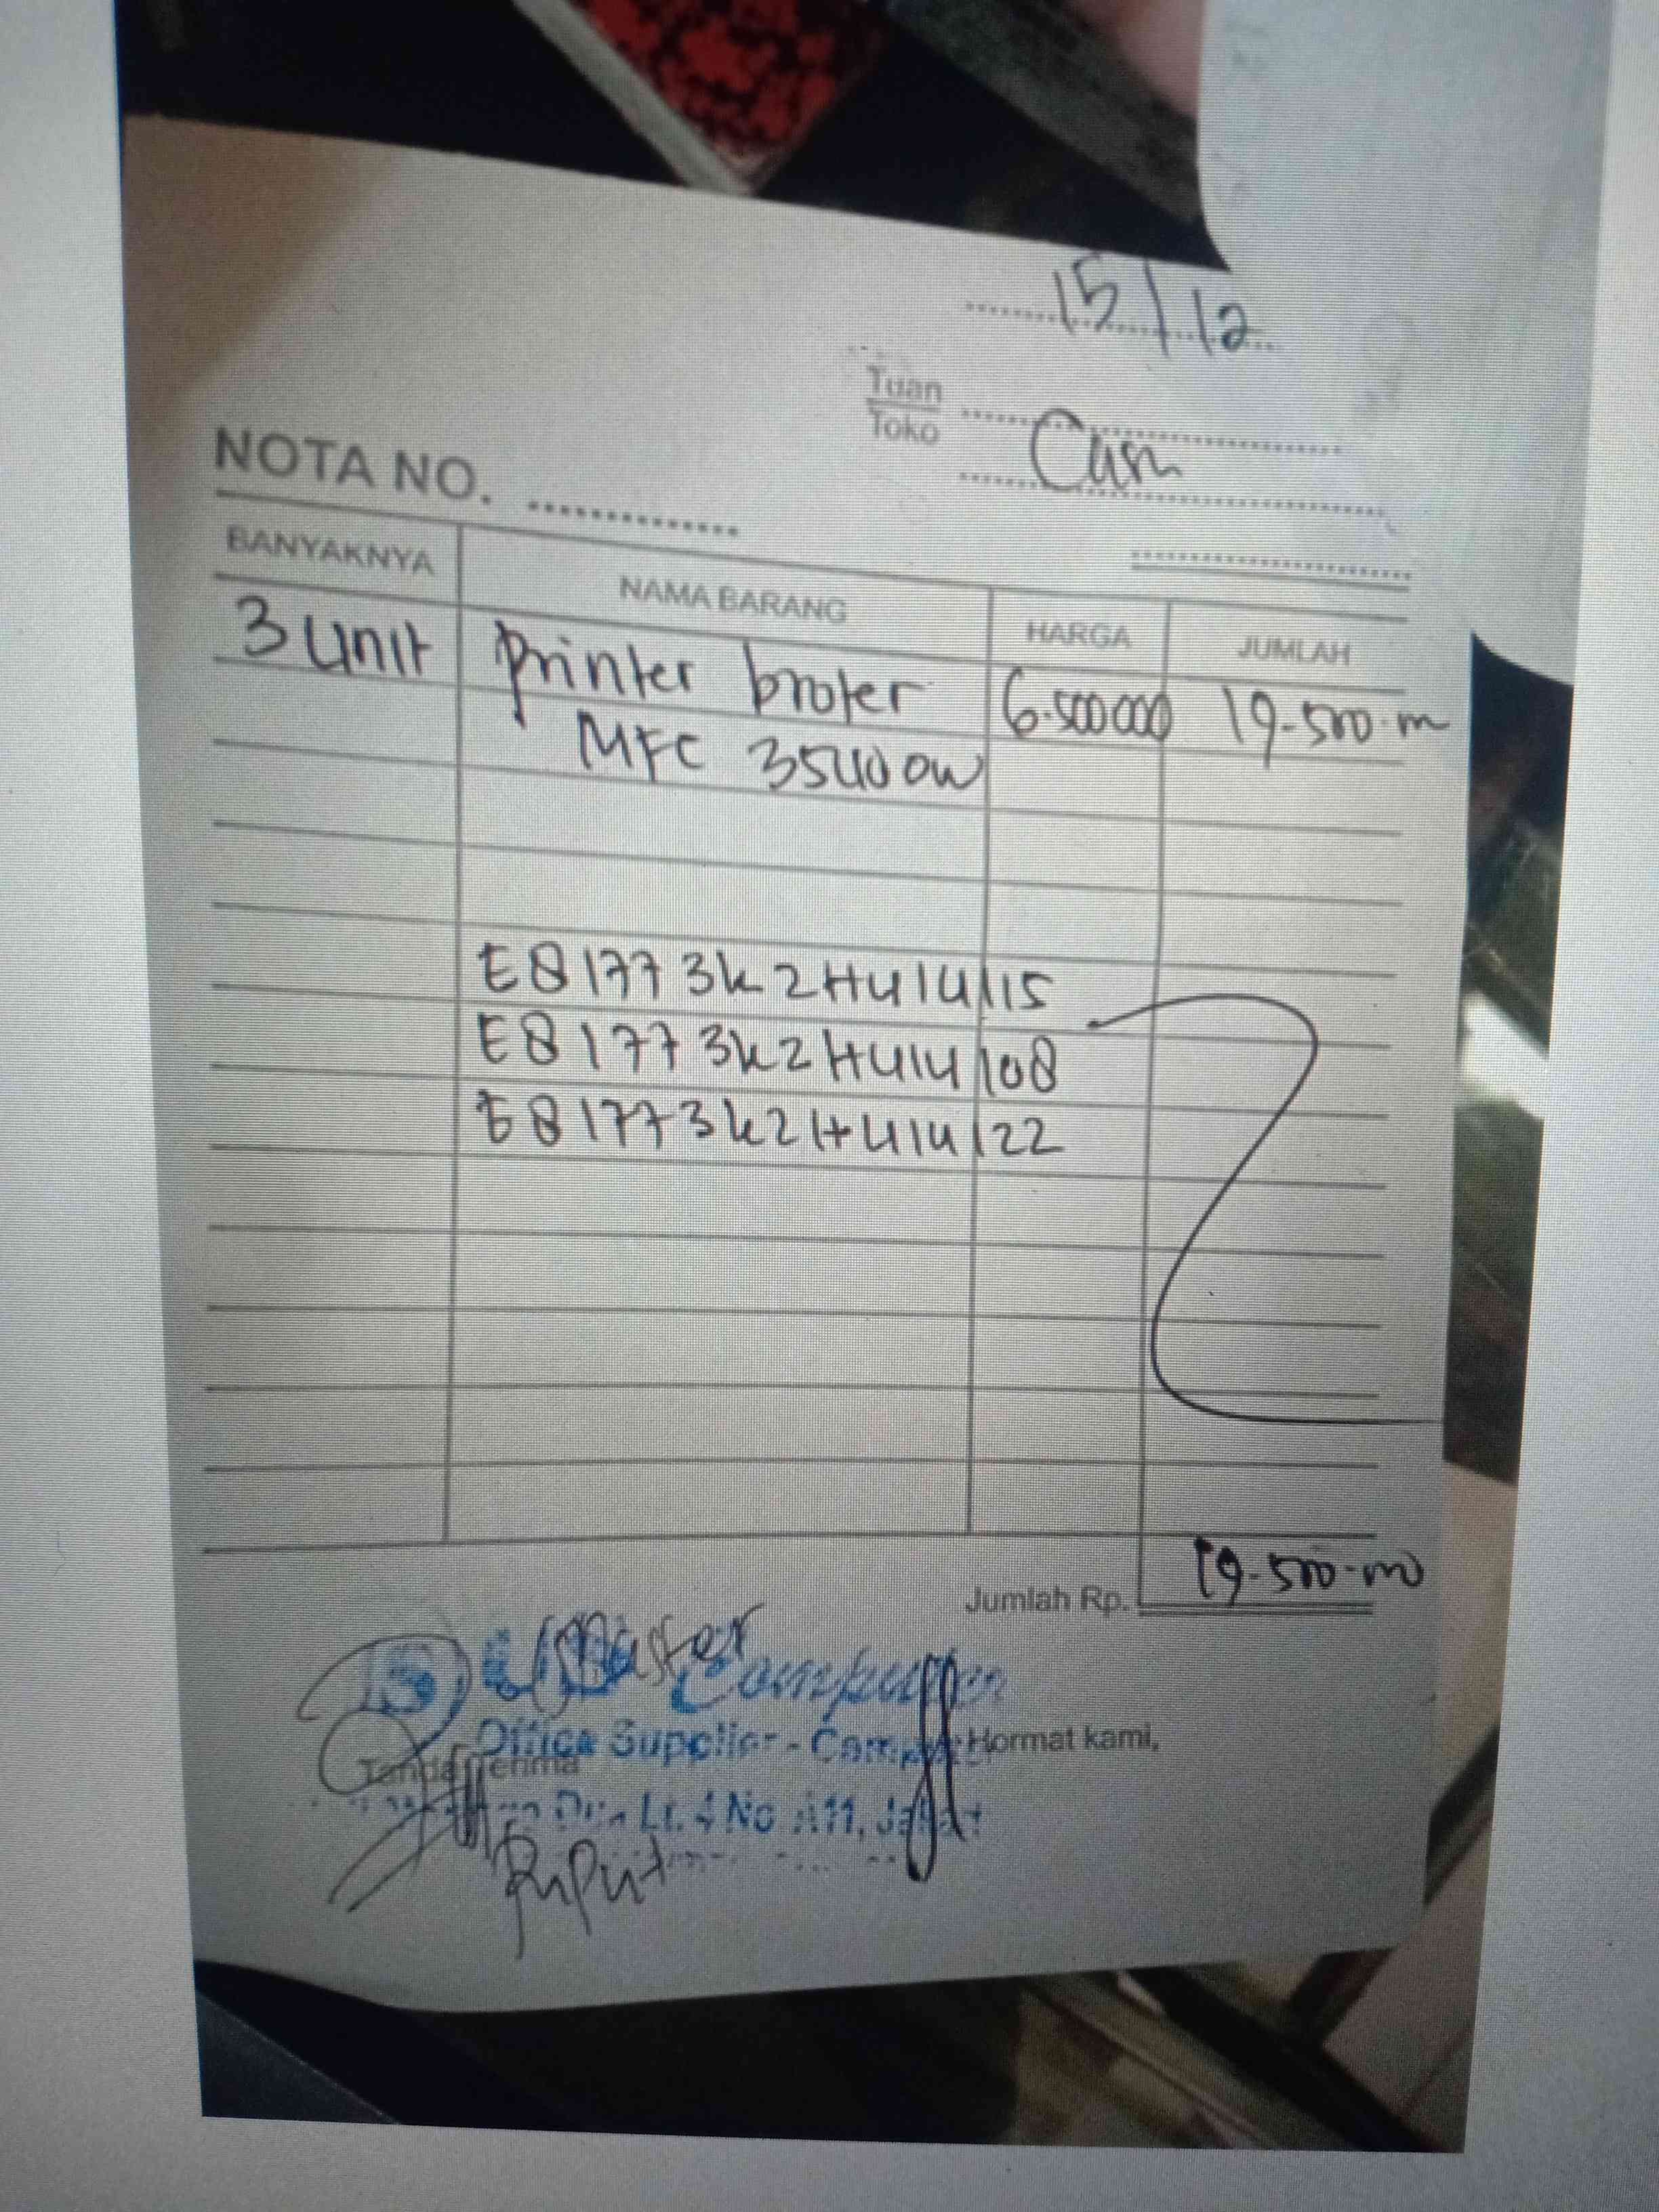 15/12
Tuan
Toko
Cash
NOTA NO.
BANYAKNYA NAMA BARANG HARGA JUMLAH
3 unit printer broter 6.500000 19.500.m
MFC 3540 DW
E81773K2H414115
E81773K2H414108
E81773K2H414122
Jumlah Rp. 19.500.m
Master
Computer
Office Supplier - Hormat kami,
Tanda terima
Lt. 4 No A11,
Puput